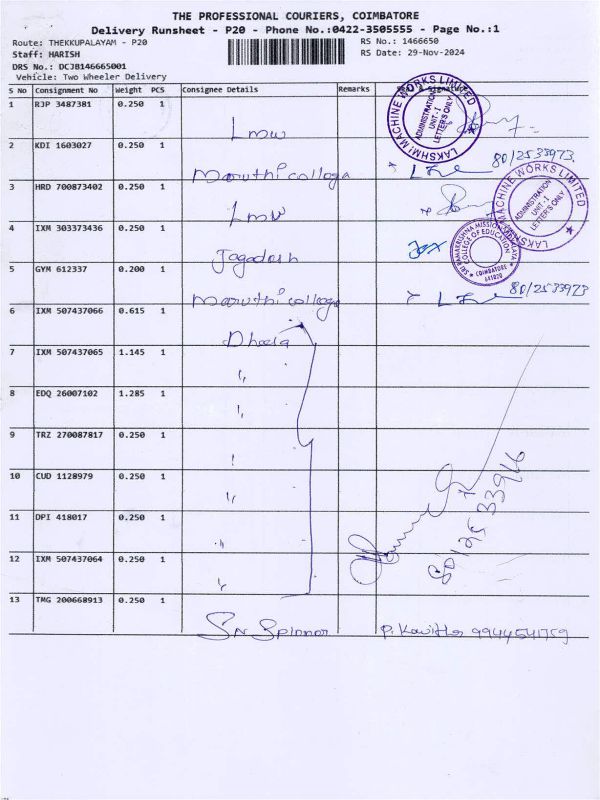 THE PROFESSIONAL COURIERS, COIMBATORE
Delivery Runsheet - P20 - Phone No.:0422-3505555 - Page No.:1
Route: THEKKUPALAYAM - P20
RS No.: 1466650
Staff: HARISH
RS Date: 29-Nov-2024
DRS No.: DCJB146665001
Vehicle: Two Wheeler Delivery
S No Consignment No Weight PCS Consignee Details Remarks
1 RJP 3487381 0.250 1
Lmw
LAKSHMI MACHINE WORKS LIMITED
ADMINISTRATION
UNIT-I
LETTER'S ONLY
2 KDI 1603027 0.250 1
Maruthi college
80/2533973
3 HRD 700873402 0.250 1
Lmw
MACHINE WORKS LIMITED
LAKSHMI
ADMINISTRATION
UNIT-I
LETTER'S ONLY
4 IXM 303373436 0.250 1
Jagadesh
SRI RAMAKRISHNA MISSION VIDYALAYA
COLLEGE OF EDUCATION
COIMBATORE
641020
5 GYM 612337 0.200 1
Maruthi college
80/2533973
6 IXM 507437066 0.615 1
7 IXM 507437065 1.145 1
"
8 EDQ 26007102 1.285 1
"
9 TRZ 270087817 0.250 1
"
10 CUD 1128979 0.250 1
"
11 DPI 418017 0.250 1
"
12 IXM 507437064 0.250 1
"
13 TMG 200668913 0.250 1
SN Spinner
P. Kavitha 9944541759